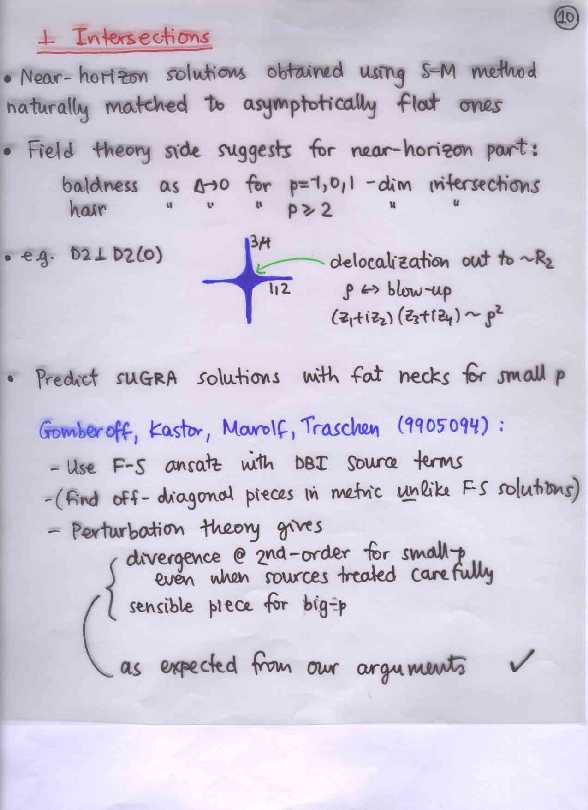 10
⊥ Intersections
• Near-horizon solutions obtained using S-M method
naturally matched to asymptotically flat ones
• Field theory side suggests for near-horizon part:
baldness as Δ→0 for p=-1,0,1 -dim intersections
hair " " " p≥2 " "
• e.g. D2⊥D2(0)
3,4
1,2
delocalization out to ~R₂
ρ ↔ blow-up
(z₁+iz₂)(z₃+iz₄) ~ ρ²
• Predict SUGRA solutions with fat necks for small p
Gomberoff, Kastor, Marolf, Traschen (9905094):
- Use F-S ansatz with DBI source terms
-(find off-diagonal pieces in metric unlike F-S solutions)
- Perturbation theory gives
divergence @ 2nd-order for small-p
even when sources treated carefully
sensible piece for big-p
as expected from our arguments ✓